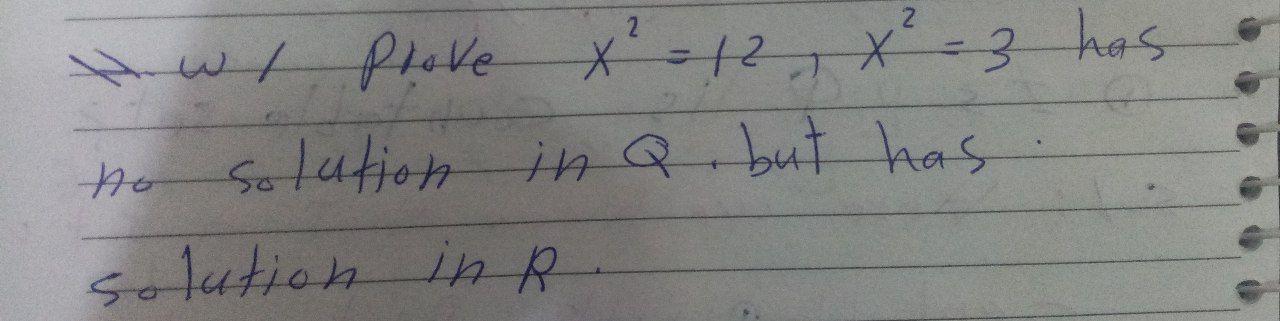 H.W/ Prove x² = 12, x² = 3 has
no solution in Q. but has
solution in R.